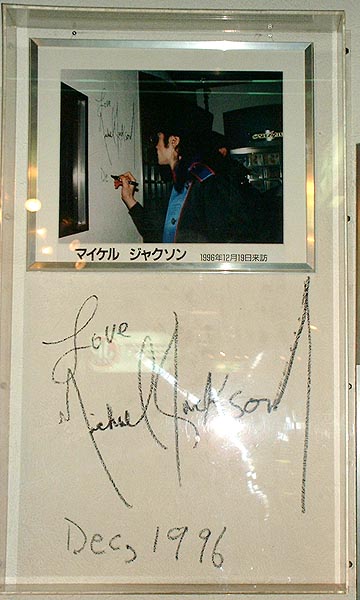 Love
Michael Jackson
Dec
マイケル ジャクソン 1996年12月19日来訪
Love
Michael Jackson
Dec, 1996